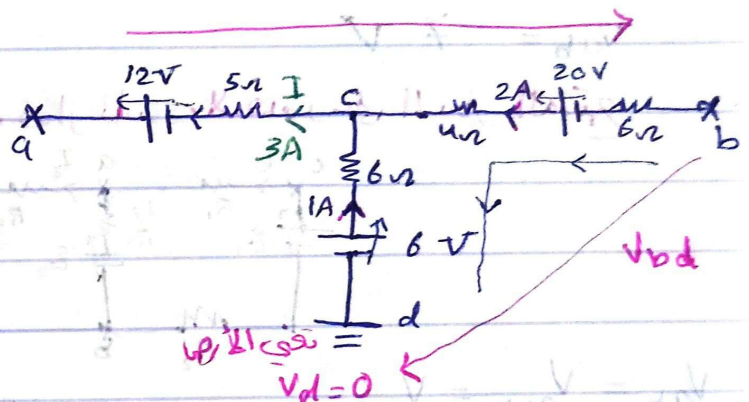 12V 5Ω I c 2A 20V
a 3A 4Ω 6Ω b
6Ω
1A
6 V
Vbd
d
تعني الأرض
Vd = 0